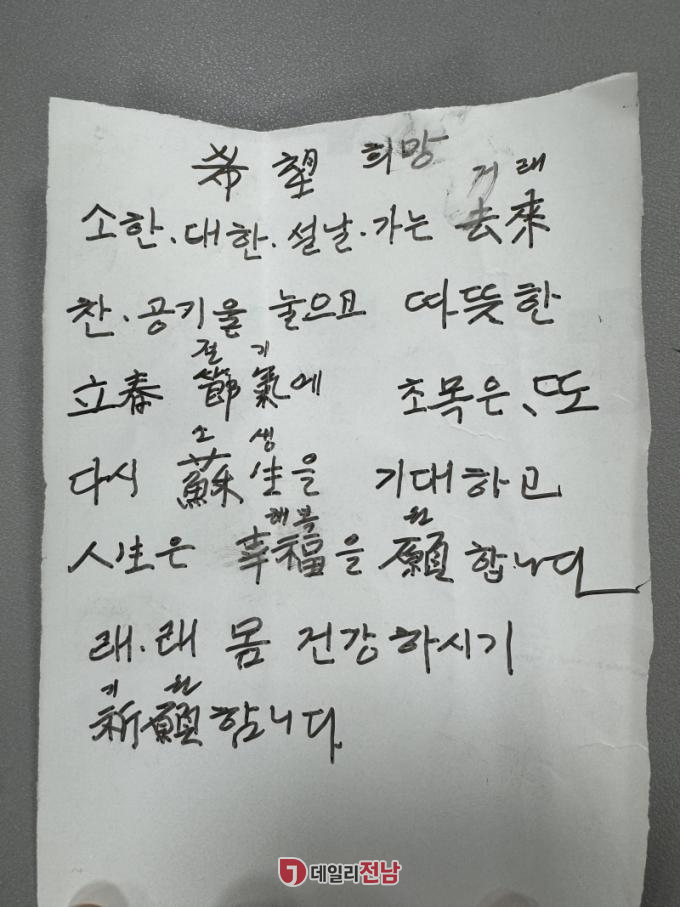 希望 희망
거래
소한.대한.설날.가는 去來
찬.공기울 눌으고 따뜻한
절기
立春 節氣에 초목은、또
소생
다시 蘇生을 기대하고
행복 원
人生은 幸福을 願합니다
래.래 몸 건강하시기
기원
祈願합니다.
데일리전남